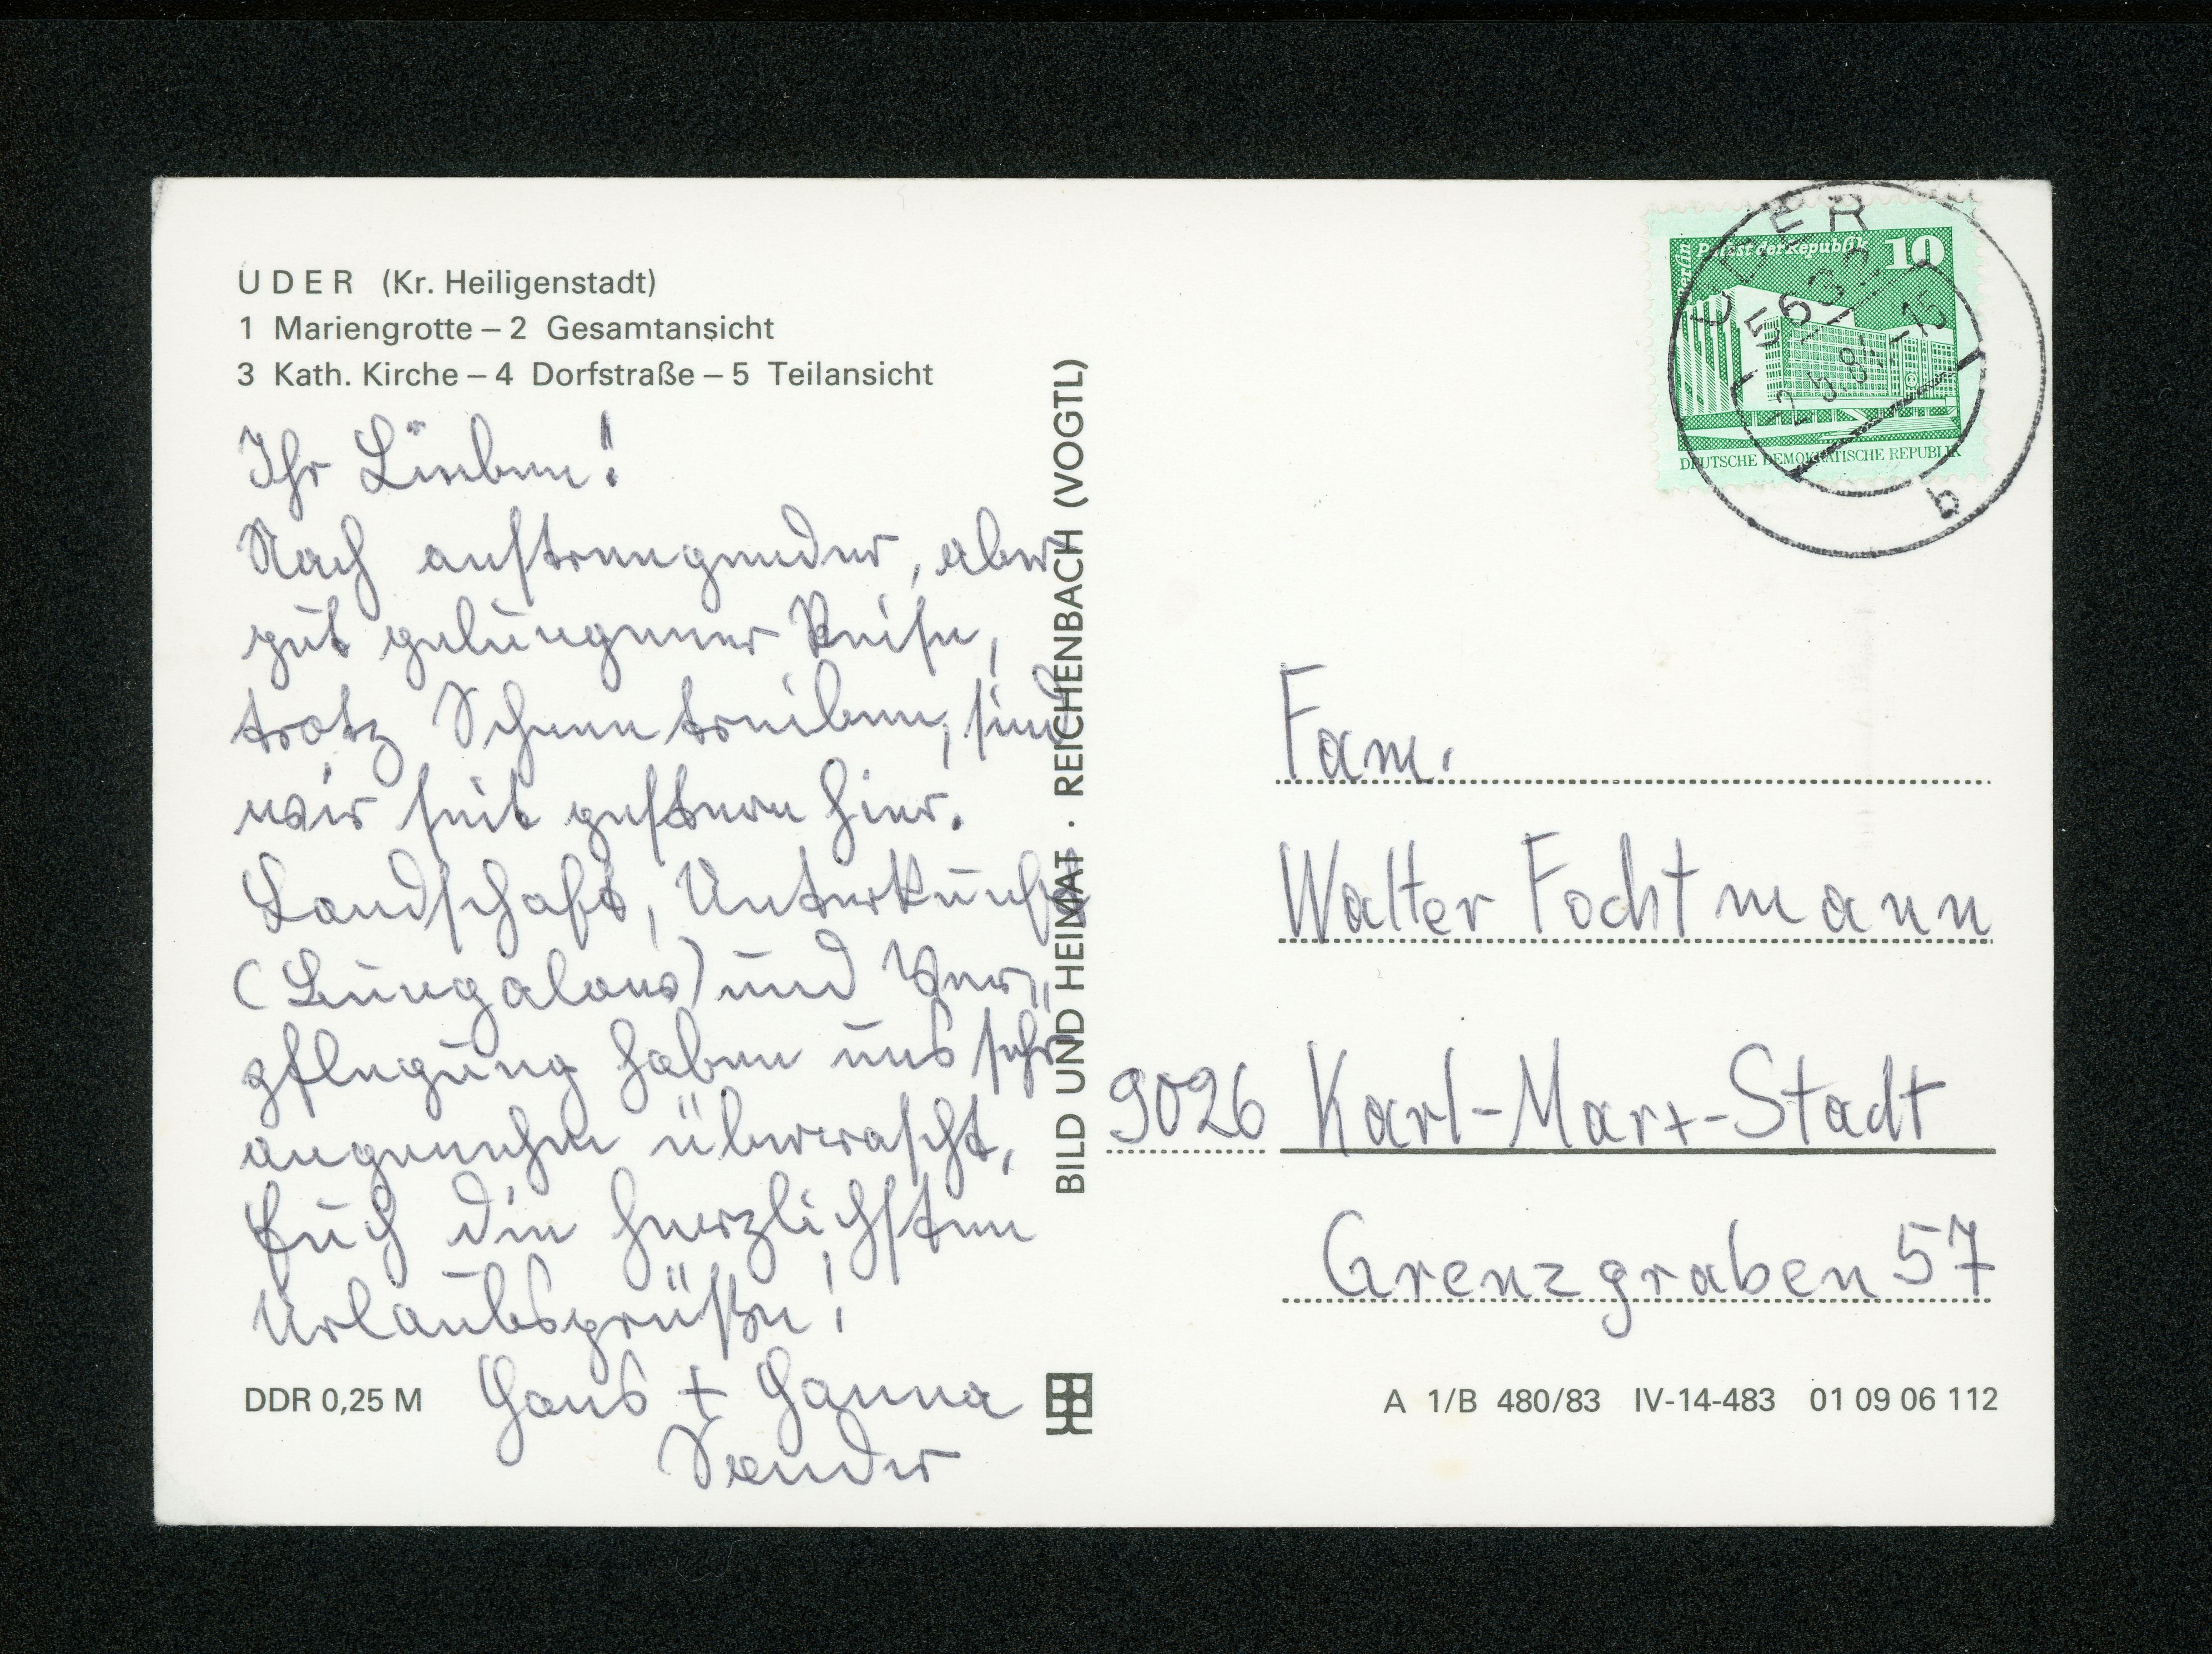 UDER (Kr. Heiligenstadt)
1 Mariengrotte – 2 Gesamtansicht
3 Kath. Kirche – 4 Dorfstraße – 5 Teilansicht
Ihr Lieben!
Nach anstrengender, aber
gut gelungener Reise,
trotz Schneetreiben, sind
wir seit gestern hier.
Landschaft, Unterkunft
(Bungalows) und Ver„
pflegung haben uns sehr
angenehm überrascht.
Euch die herzlichsten
Urlaubsgrüße!
Hans + Hanna
Sander
DDR 0,25 M
BILD UND HEIMAT · REICHENBACH (VOGTL)
Berlin Palast der Republik 10
DEUTSCHE DEMOKRATISCHE REPUBLIK
UDER
-15
b
Fam.
Walter Fochtmann
9026 Karl-Marx-Stadt
Grenzgraben 57
A 1/B 480/83 IV-14-483 01 09 06 112